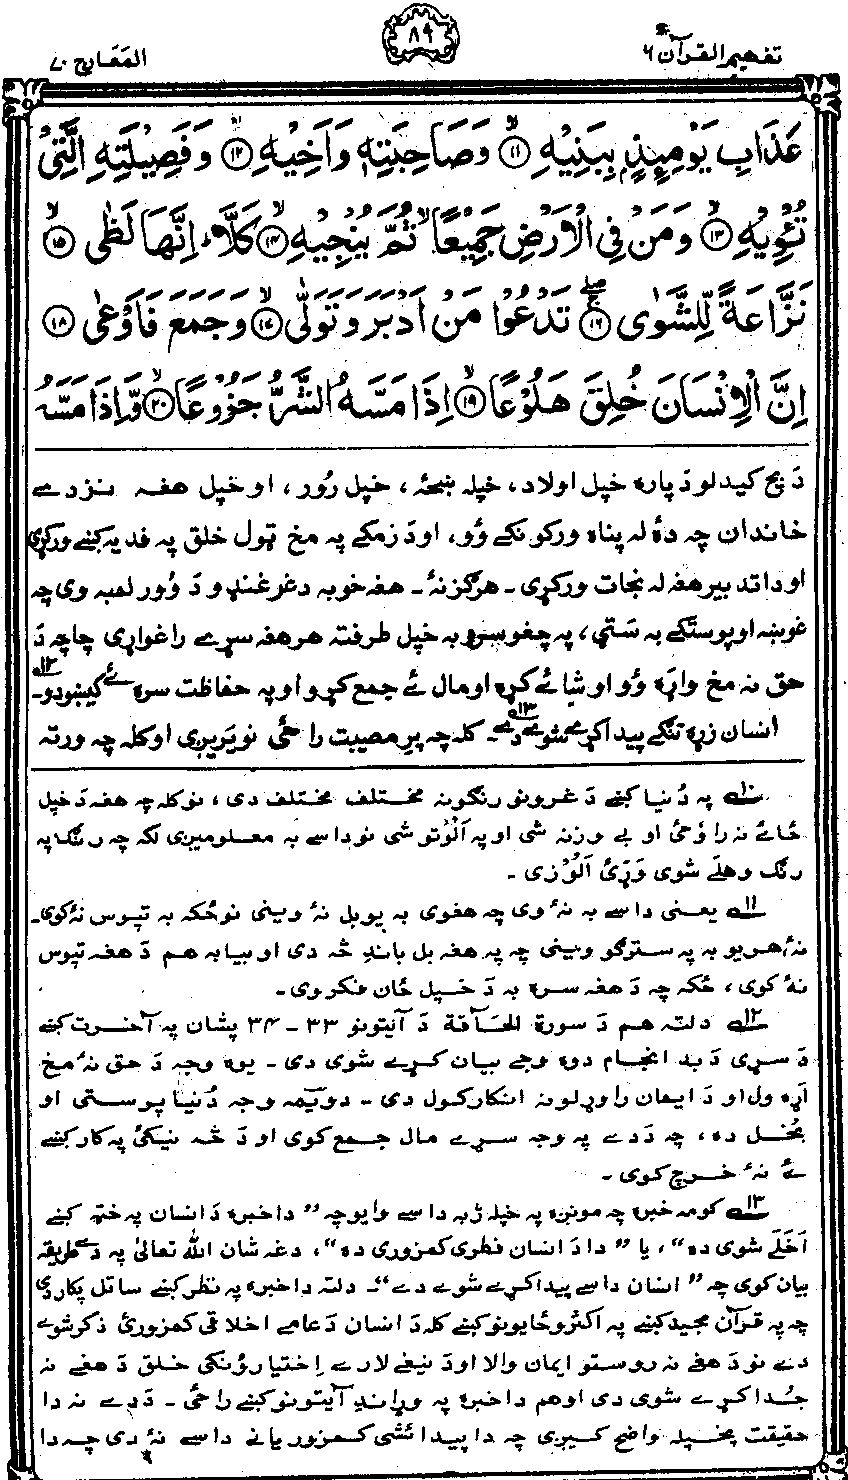 تفهيم القرآن ۶
۸۹
المَعَارج ۷۰
عَذَابِ يَوْمِئِذٍۭ بِبَنِيْهِ ۙ‏﴿۱۱﴾ وَصَاحِبَتِهٖ وَاَخِيْهِ ۙ‏﴿۱۲﴾ وَفَصِيْلَتِهِ الَّتِىْ
تُــْٔوِيْهِ ۙ‏﴿۱۳﴾ وَمَنْ فِى الْاَرْضِ جَمِيْعًا ۙ ثُمَّ يُنْجِيْهِ ۙ‏﴿۱۴﴾ كَلَّا ؕ اِنَّهَا لَظٰى ۙ‏﴿۱۵﴾
نَزَّاعَةً لِّلشَّوٰى ۖۚ‏﴿۱۶﴾ تَدْعُوْا مَنْ اَدْبَرَ وَتَوَلّٰى ۙ‏﴿۱۷﴾ وَجَمَعَ فَاَوْعٰى ‏﴿۱۸﴾
اِنَّ الْاِنْسَانَ خُلِقَ هَلُوْعًا ۙ‏﴿۱۹﴾ اِذَا مَسَّهُ الشَّرُّ جَزُوْعًا ۙ‏﴿۲۰﴾ وَّاِذَا مَسَّهُ
دَ بچ کیدلو دَ پاره خپل اولاد، خپله ښځه، خپل رُور، او خپل هغه نزدے
خاندان چه دۀ له پناه ورکونکے وُو، او دَ زمکے په مخ ټول خلق په فدیه کښے ورکړی
او دا تدبیر هغه له نجات ورکړی ـ هرګز نۀ ـ هغه خو به دغرغنډو دَ وُور لمبه وی چه
غوښه او پوستکے به سَتی، په چغو سره به خپل طرفته هر هغه سړے راغواړی چا چه دَ
حق نه مخ واړه وُو او شا ئے کړه او مال ئے جمع کړو او په حفاظت سره ئے کیښودو ـ ۱۲
انسان زړه تنګے پیدا کړے شوے دے ـ ۱۳ کله چه پرِ مصیبت راځی نو یَریږی او کله چه ورته
۱۰ په دُنیا کښے دَ غرونو رنګونه مختلف مختلف دی، نو کله چه هغه دَ خپل
ځائے نه راوځی او بے وزنه شی او په اَلُوتو شی نو داسے به معلومیږی لکه چه رنګ په
رنګ وهلے شوی وَړئ اَلوُزی ـ
۱۱ یعنی داسے به نۀ وی چه هغوی به یو بل نۀ وینی نو ځکه به تپوس نۀ کوی ـ
نۀ، هر یو به په سترګو وینی چه په هغه بل باندِ څه دی او بیا به هم دَ هغه تپوس
نۀ کوی، ځکه چه دَ هغه سره به دَ خپل ځان فکر وی ـ
۱۲ دلته هم دَ سورة الحَآقة دَ آیتونو ۳۳ ـ ۳۴ پشان په آخرت کښے
دَ سړی دَ بد انجام دوه وجے بیان کړے شوی دی ـ یوه وجه دَ حق نۀ مخ
اړه ول او دَ ایمان راوړلو نه انکار کول دی ـ دویمه وجه دُنیا پرستی او
بُخل ده، چه دَ دے په وجه سړے مال جمع کوی او دَ څه نیکئ په کار کښے
ئے نۀ خرچ کوی ـ
۱۳ کومه خبره چه مونږه په خپله ژبه داسے وایو چه " دا خبره دَ انسان په خټه کښے
اَخَلے شوی ده"، یا " دا دَ انسان فطری کمزوری ده"، دغه شان الله تعالیٰ په دے طریقه
بیان کوی چه " انسان داسے پیدا کړے شوے دے" ـ دلته دا خبره په نظر کښے ساتل پکار دی
چه په قرآن مجید کښے په اکثرو ځایونو کښے کله دَ انسان دَ عامے اخلاقی کمزورئ ذکر شوے
دے نو دَ هغے نه روستو ایمان والا او دَ نیغے لارے اختیارؤنکی خلق دَ هغے نه
جُدا کړے شوی دی او هم دا خبره په وړاندِ آیتونو کښے راځی ـ دَ دے نه دا
حقیقت پخپله واضح کیږی چه دا پیدائشی کمزوریانے داسے نۀ دی چه دا